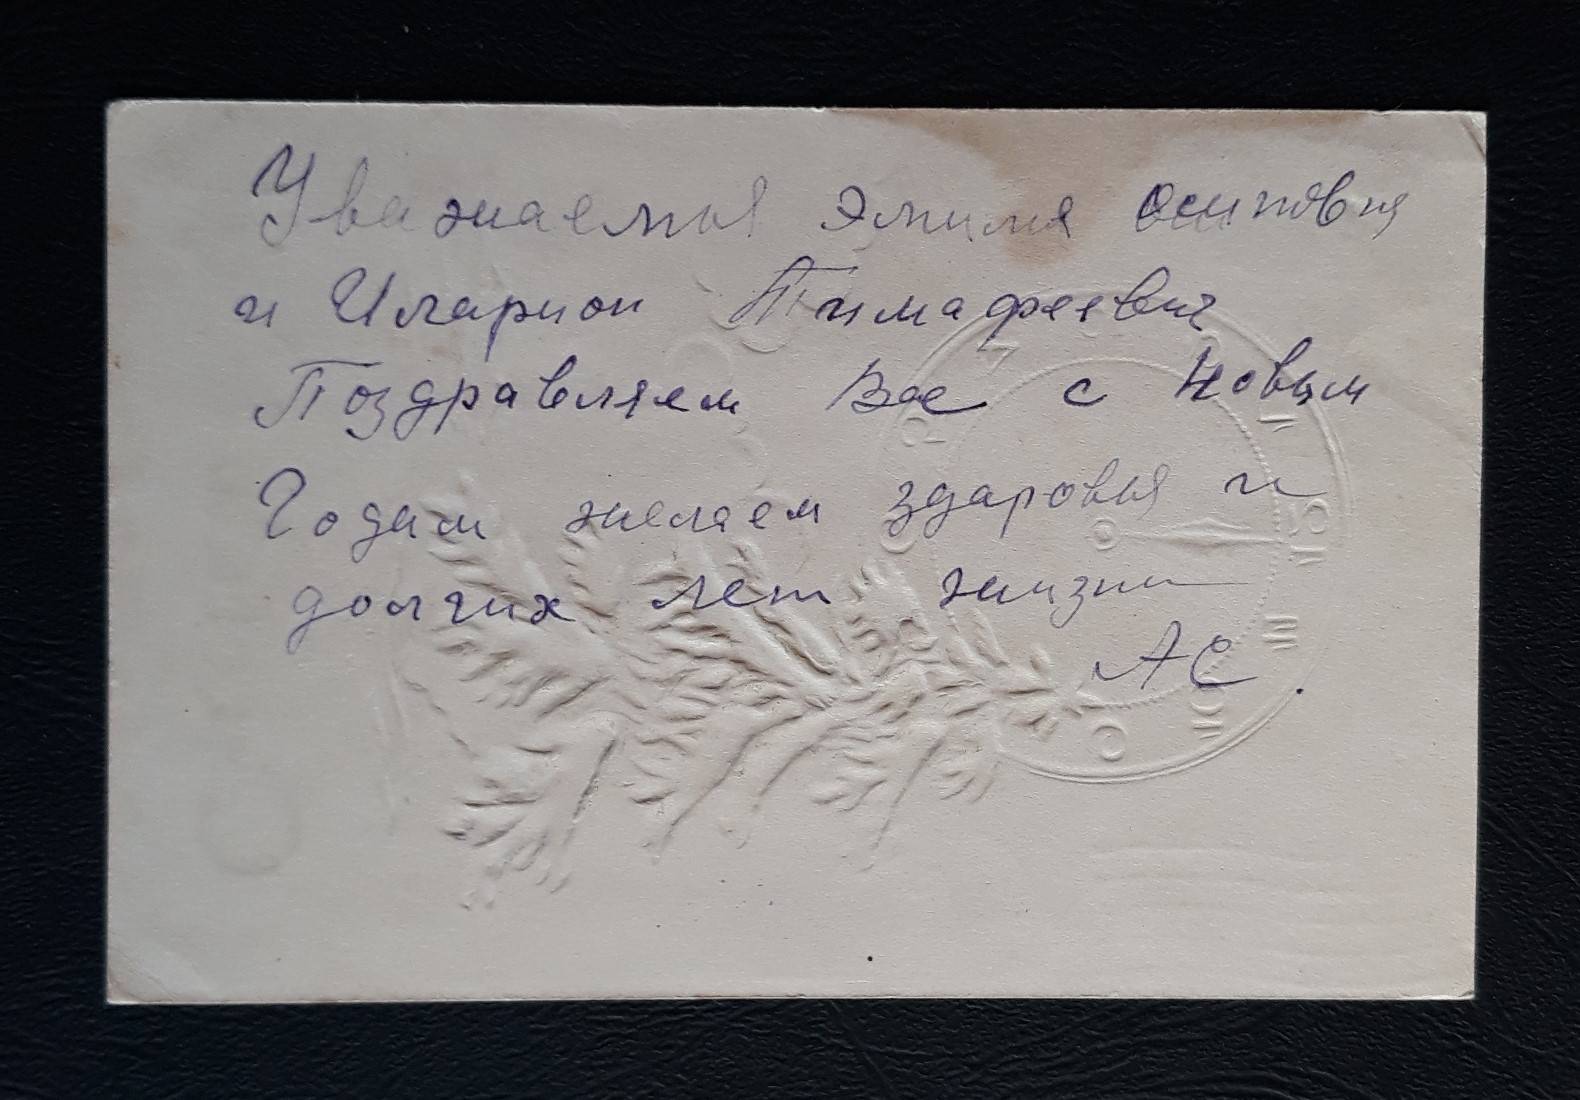 Уважаемыя Эмилия Осиповня
и Иларион Тимафеевич
Поздравляем Вас с Новым
Годам желаем здаровья и
долгих лет жизни
АС.